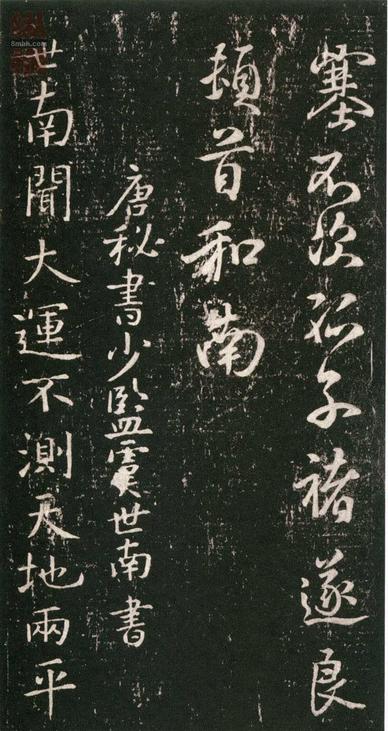 塞不次孤子褚遂良
頓首和南
唐秘書少監虞世南書
世南聞大運不測天地兩平
8mhh.com